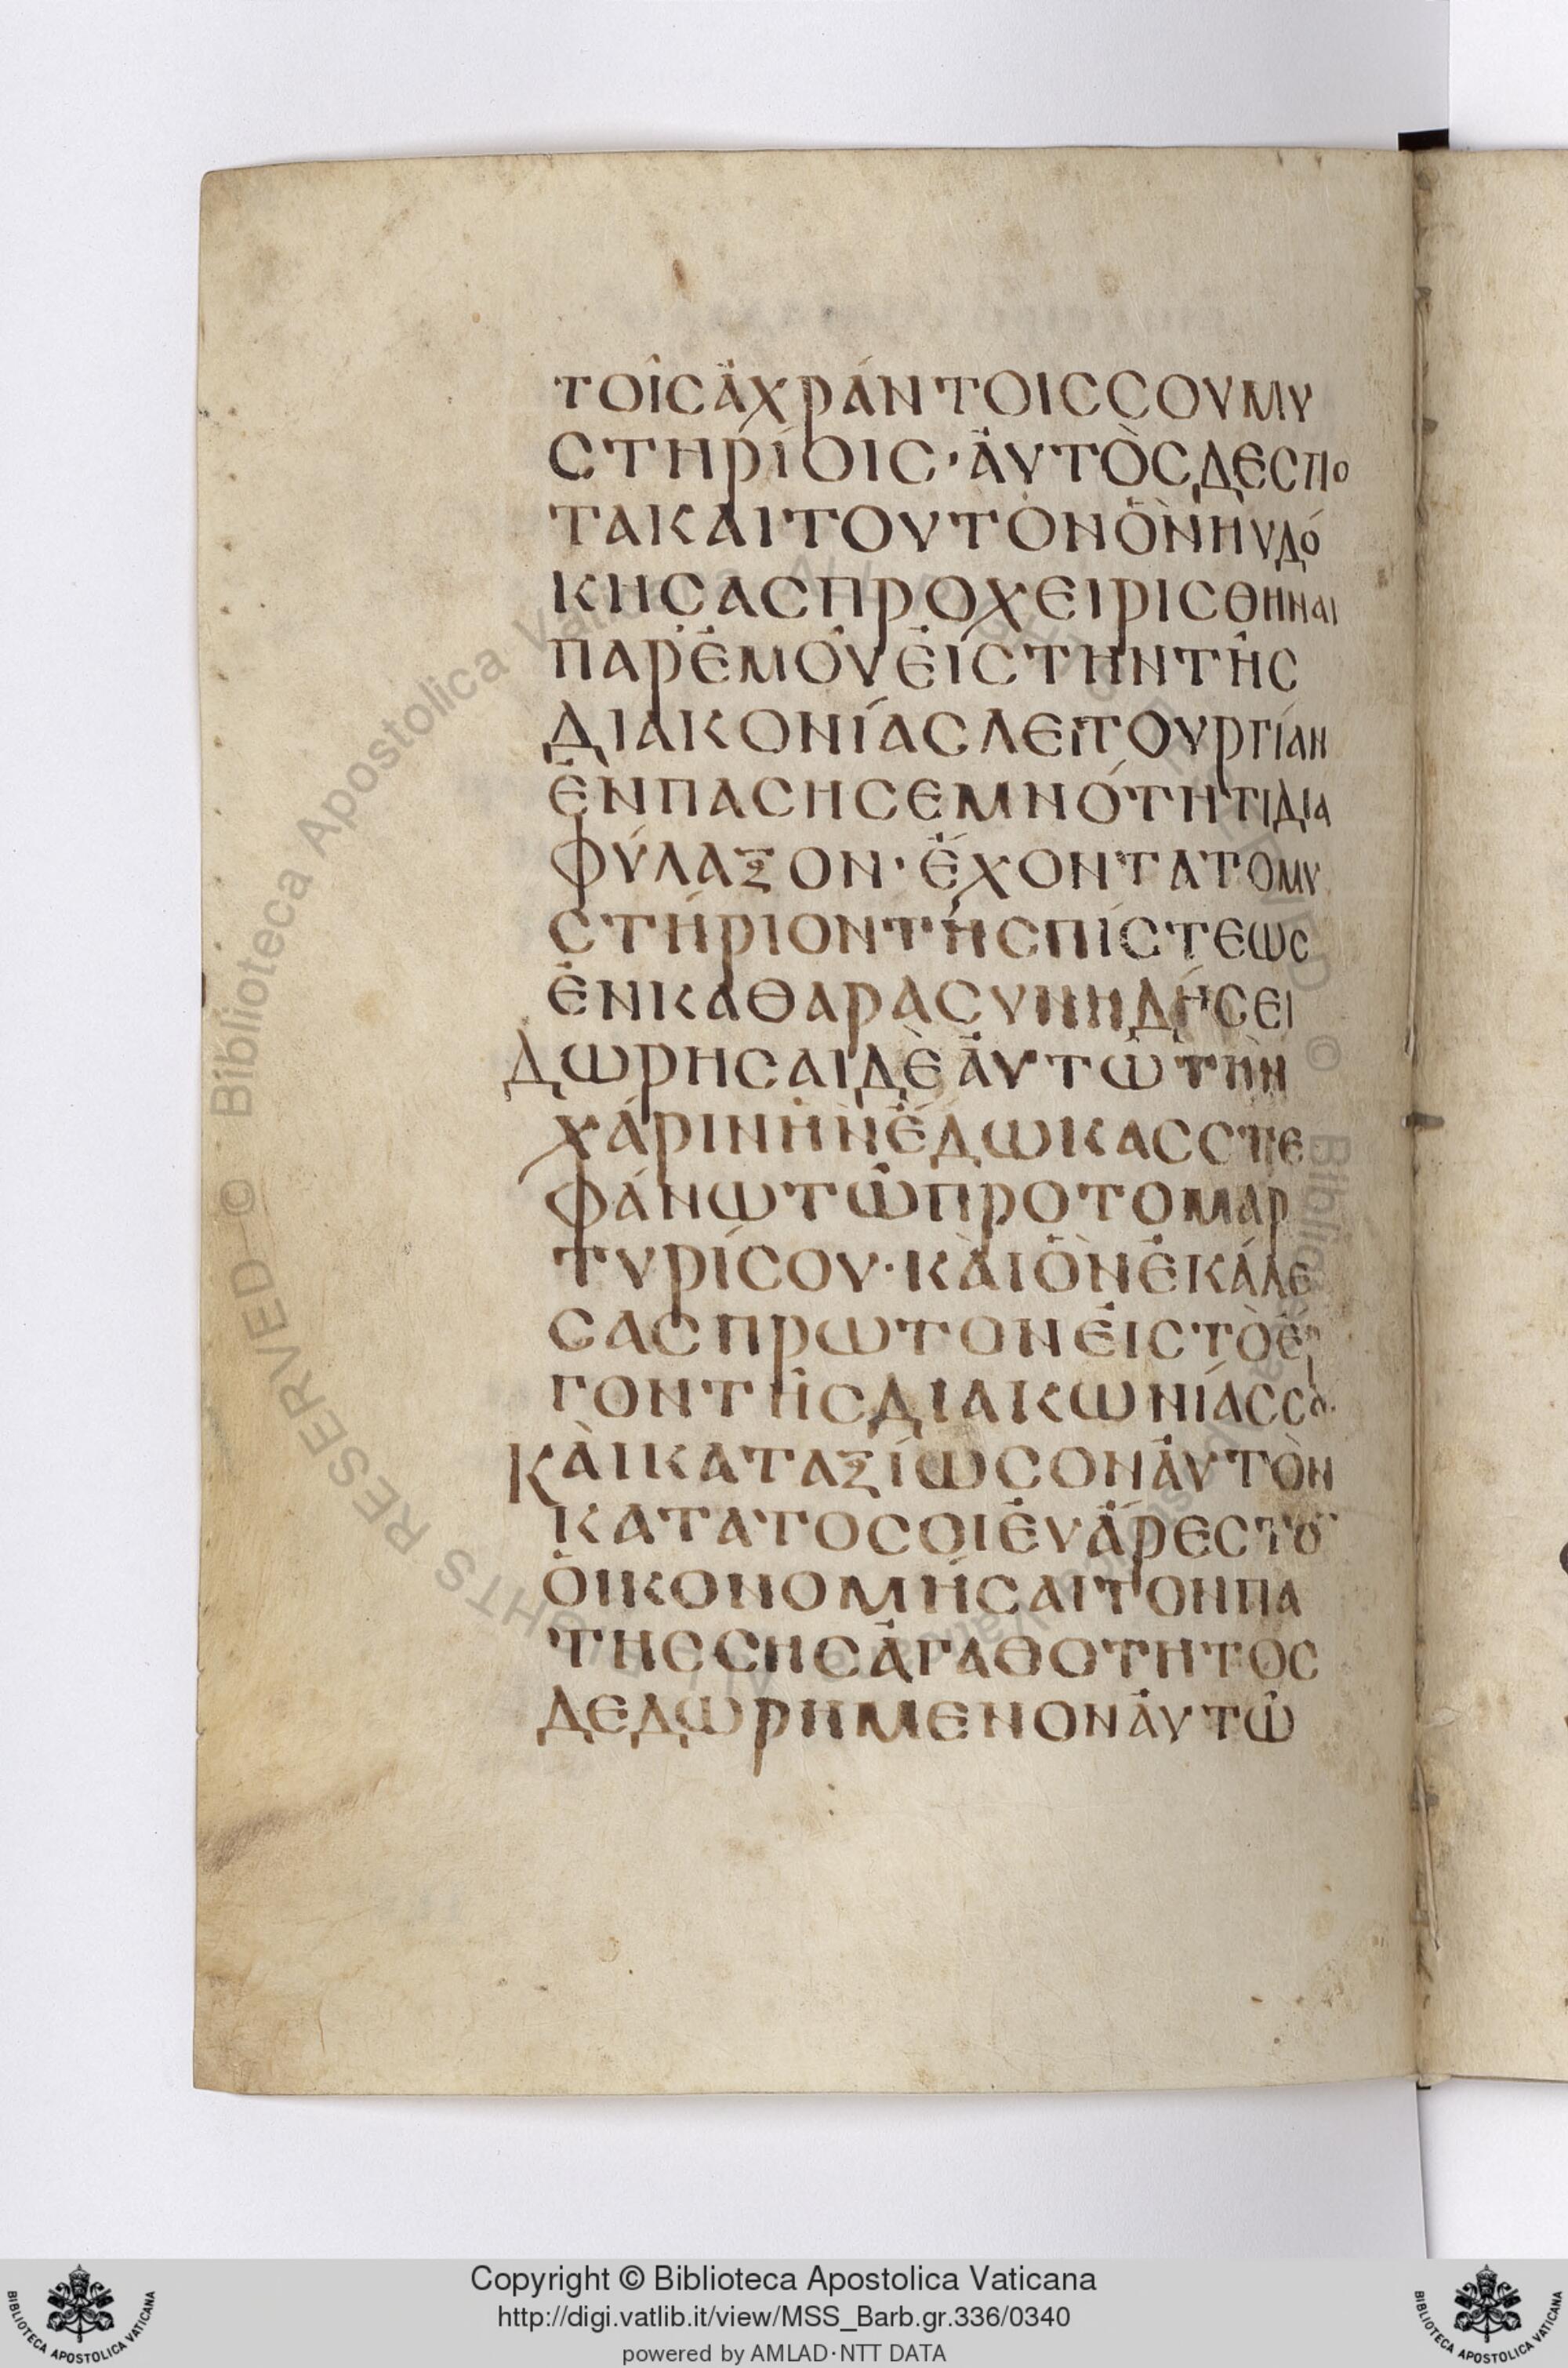 ΤΟΙCΑΧΡΑΝΤΟΙCCΟΥΜΥ
CΤΗΡΙΟΙC·ΑΥΤΟCΔΕCΠΟ
ΤΑΚΑΙΤΟΥΤΟΝΟΝΗΥΔΟ
ΚΗCΑCΠΡΟΧΕΙΡΙCΘΗΝΑΙ
ΠΑΡΕΜΟΥΕΙCΤΗΝΤΗC
ΔΙΑΚΟΝΙΑCΛΕΙΤΟΥΡΓΙΑΝ
ΕΝΠΑCΗCΕΜΝΟΤΗΤΙΔΙΑ
ΦΥΛΑΞΟΝ·ΕΧΟΝΤΑΤΟΜΥ
CΤΗΡΙΟΝΤΗCΠΙCΤΕΩC
ΕΝΚΑΘΑΡΑCΥΝΗΔΗCΕΙ
ΔΩΡΗCΑΙΔΕΑΥΤΩΤΗΝ
ΧΑΡΙΝΗΝΕΔΩΚΑCCΤΕ
ΦΑΝΩΤΩΠΡΟΤΟΜΑΡ
ΤΥΡΙCΟΥ·ΚΑΙΟΝΕΚΑΛΕ
CΑCΠΡΩΤΟΝΕΙCΤΟΕΡ
ΓΟΝΤΗCΔΙΑΚΩΝΙΑCCΟΥ
ΚΑΙΚΑΤΑΞΙΩCΟΝΑΥΤΟΝ
ΚΑΤΑΤΟCΟΙΕΥΑΡΕCΤΟ
ΟΙΚΟΝΟΜΗCΑΙΤΟΝΠΑ
ΤΗCCΗCΑΓΑΘΟΤΗΤΟC
ΔΕΔΩΡΗΜΕΝΟΝΑΥΤΩ
© Biblioteca Apostolica Vaticana
Copyright © Biblioteca Apostolica Vaticana
http://digi.vatlib.it/view/MSS_Barb.gr.336/0340
powered by AMLAD·NTT DATA
BIBLIOTECA APOSTOLICA VATICANA
BIBLIOTECA APOSTOLICA VATICANA